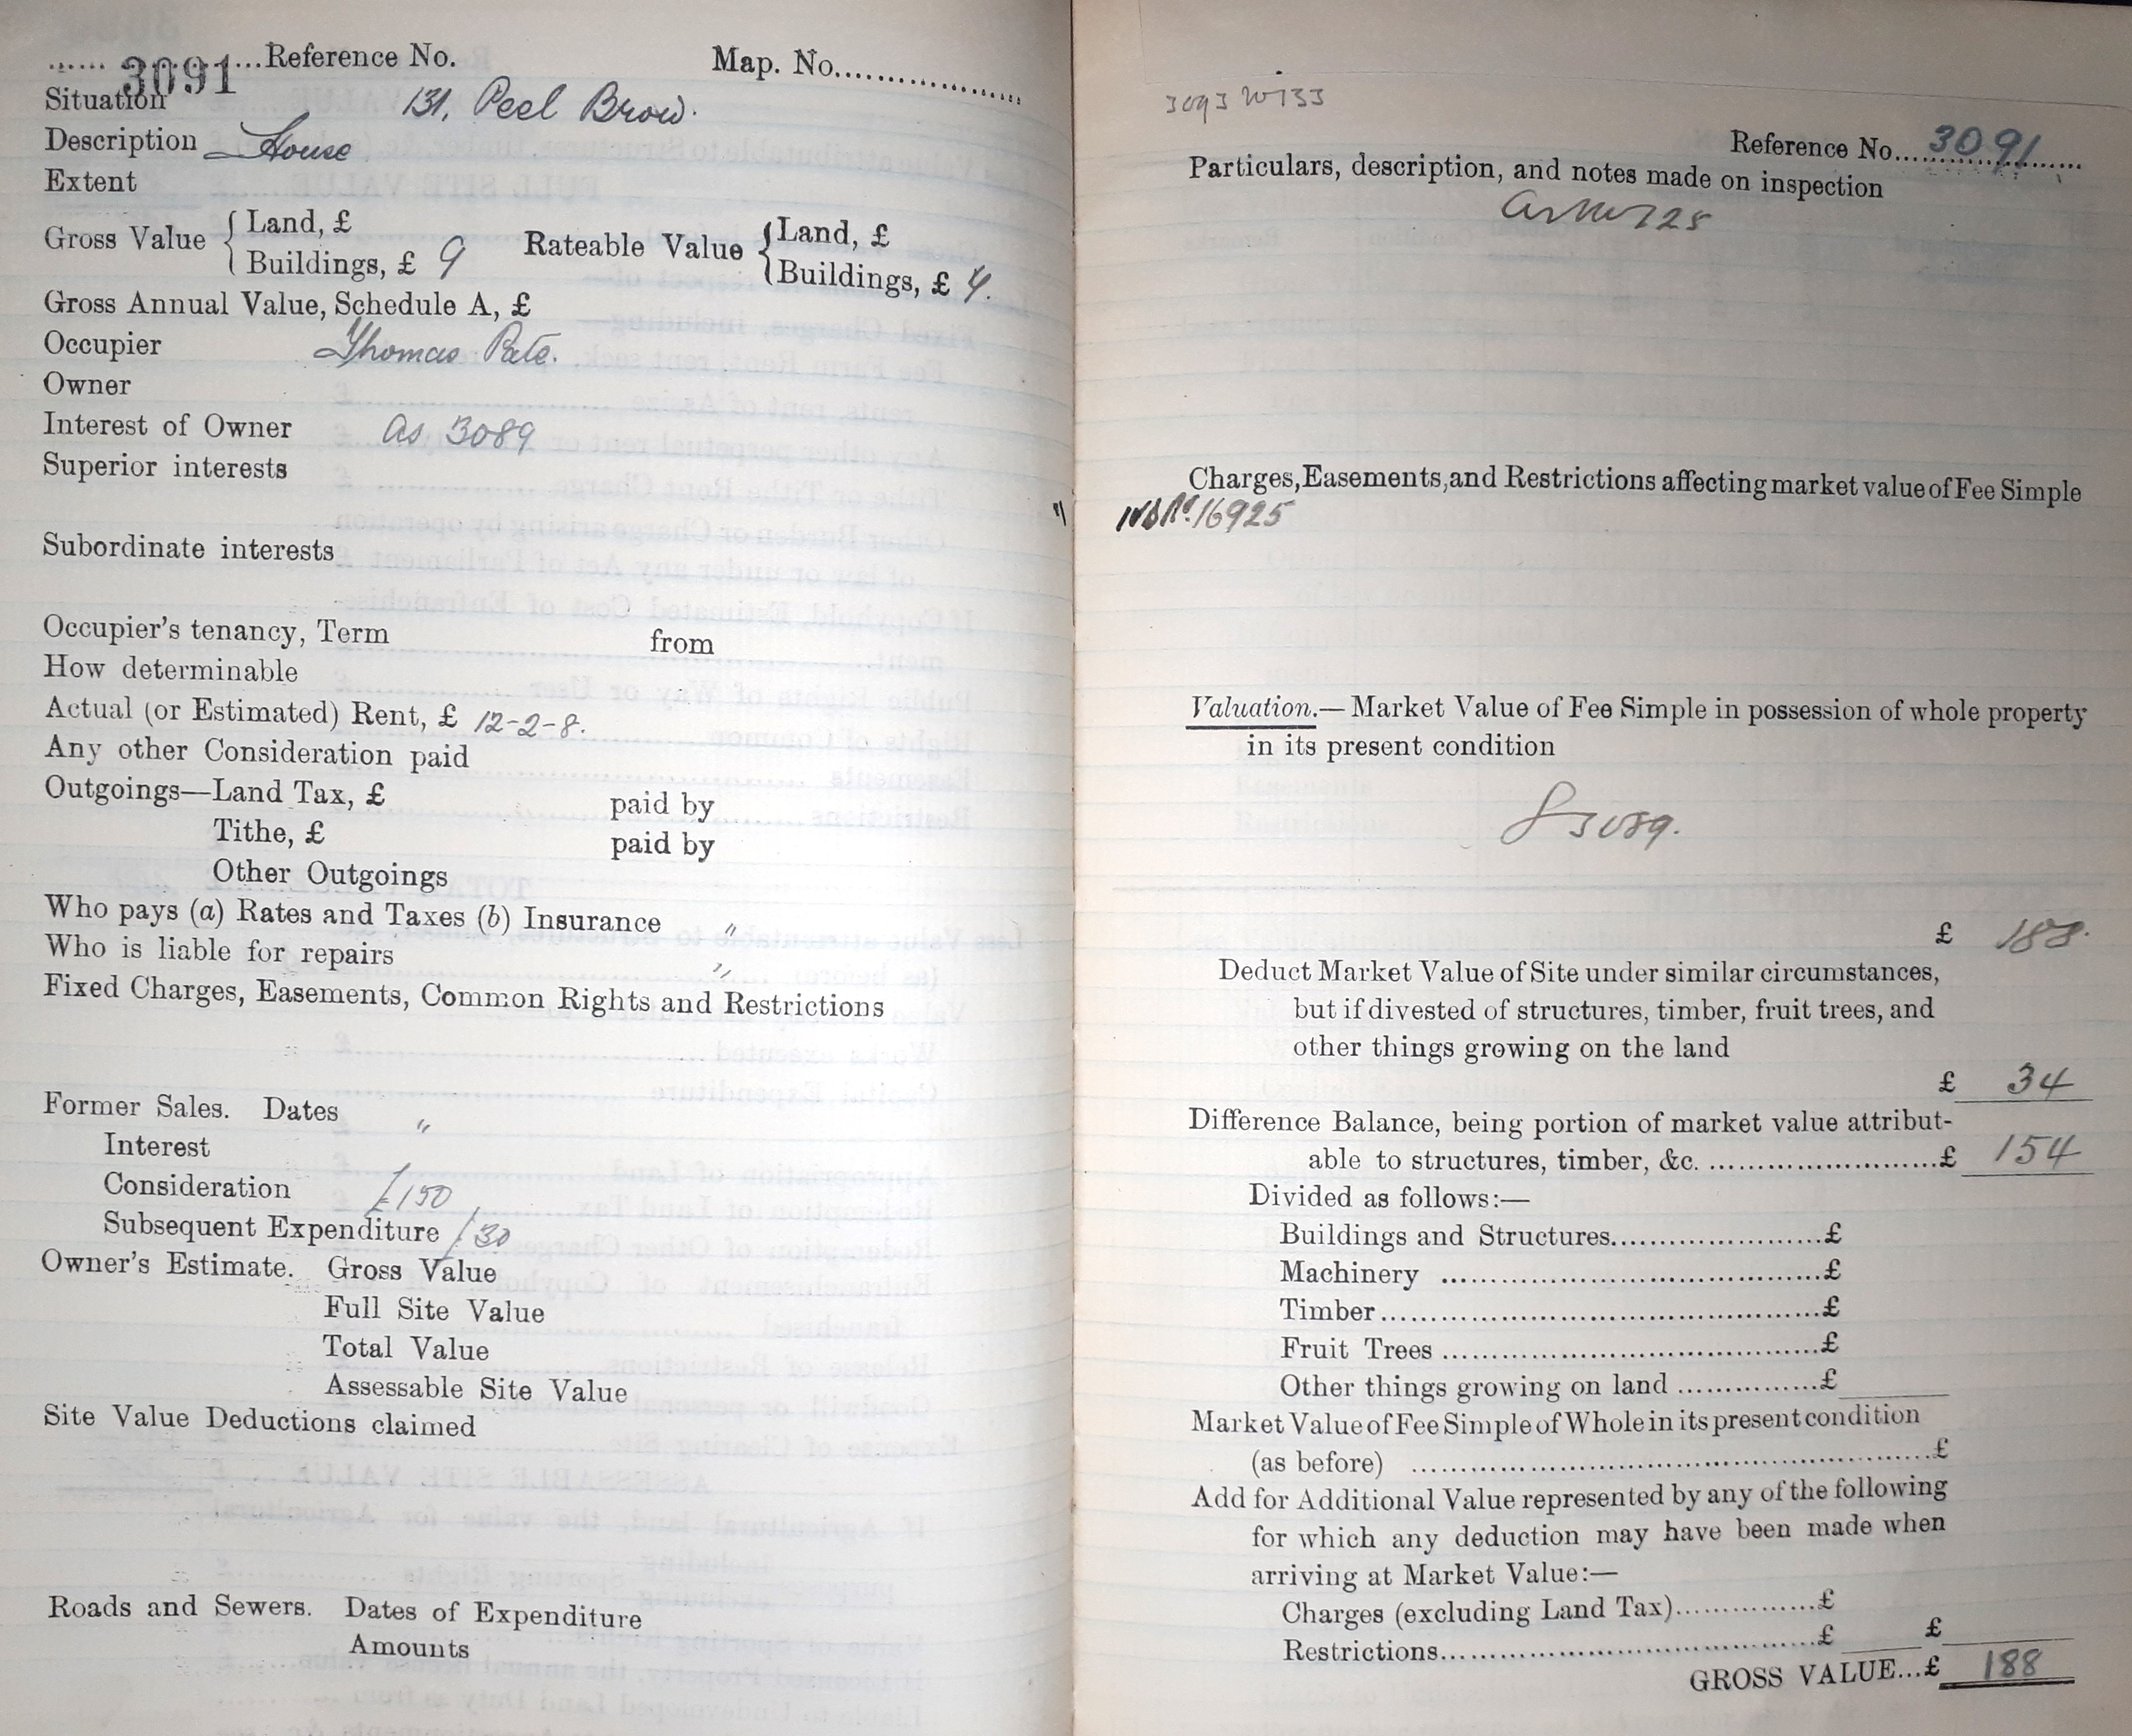 ...... 3091 ...Reference No. Map. No....................
Situation 131, Peel Brow.
Description House
Extent
Gross Value { Land, £
Buildings, £ 9
Rateable Value { Land, £
Buildings, £
Gross Annual Value, Schedule A, £
Occupier Thomas Pate.
Owner
Interest of Owner as 3089
Superior interests
Subordinate interests
Occupier's tenancy, Term from
How determinable
Actual (or Estimated) Rent, £ 12-2-8.
Any other Consideration paid
Outgoings—Land Tax, £ paid by
Tithe, £ paid by
Other Outgoings
Who pays (a) Rates and Taxes (b) Insurance "
Who is liable for repairs "
Fixed Charges, Easements, Common Rights and Restrictions
Former Sales. Dates "
Interest
Consideration £150
Subsequent Expenditure £30
Owner's Estimate. Gross Value
Full Site Value
Total Value
Assessable Site Value
Site Value Deductions claimed
Roads and Sewers. Dates of Expenditure
Amounts
Reference No. 3091
Particulars, description, and notes made on inspection
Charges, Easements, and Restrictions affecting market value of Fee Simple
16925
Valuation.—Market Value of Fee Simple in possession of whole property
in its present condition
3089.
£ 188.
Deduct Market Value of Site under similar circumstances,
but if divested of structures, timber, fruit trees, and
other things growing on the land
£ 34
Difference Balance, being portion of market value attribut-
able to structures, timber, &c. ........................£ 154
Divided as follows:—
Buildings and Structures......................£
Machinery .......................................£
Timber.............................................£
Fruit Trees ......................................£
Other things growing on land ...............£
Market Value of Fee Simple of Whole in its present condition
(as before) .....................................................£
Add for Additional Value represented by any of the following
for which any deduction may have been made when
arriving at Market Value:—
Charges (excluding Land Tax)...............£
Restrictions.......................................£ £
GROSS VALUE...£ 188